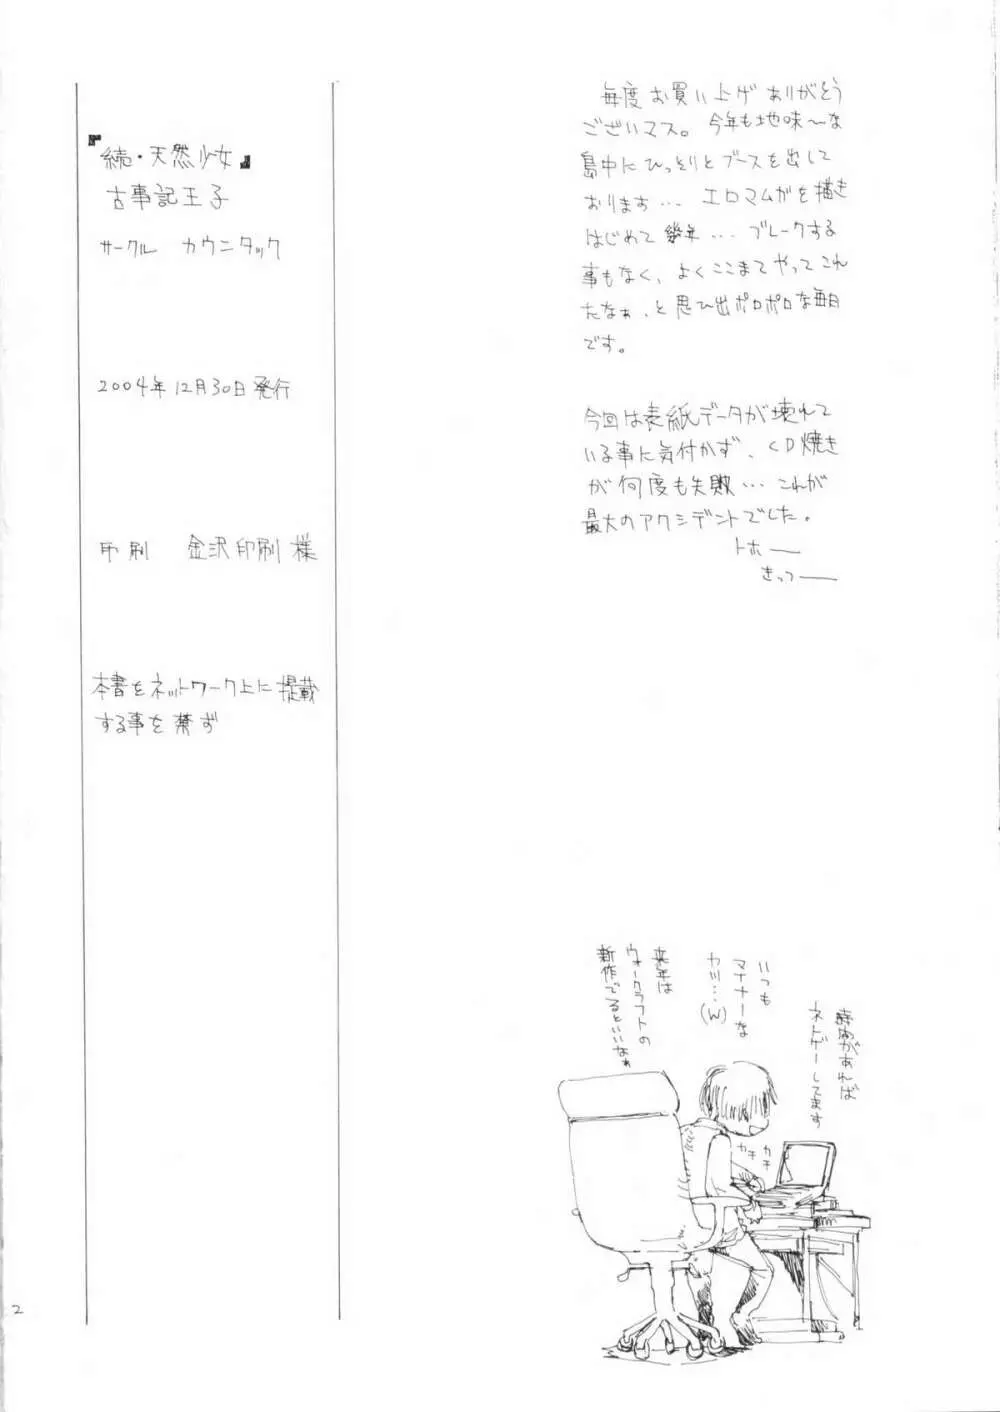 『続・天然少女』
古事記王子
サークル カウニタック
2004年12月30日発行
印刷 金沢印刷様
本書をネットワーク上に掲載
する事を禁ず
毎度お買い上げありがとう
ございマス。今年も地味〜な
島中にひっそりとブースを出して
おります… エロマムガを描き
はじめて幾年… ブレークする
事もなく、よくここまでやってこれ
たなぁ、と思ひ出ポロポロな毎日
です。
今回は表紙データが壊れて
いる事に気付かず、CD焼き
が何度も失敗… これが
最大のアクシデントでした。
トホー
きっつー
時間があれば
ネトゲーしてます
いつも
マイナーな
カツ…(W)
来年は
ウォークラフトの
新作でるといいなぁ
カチ
カチ
2